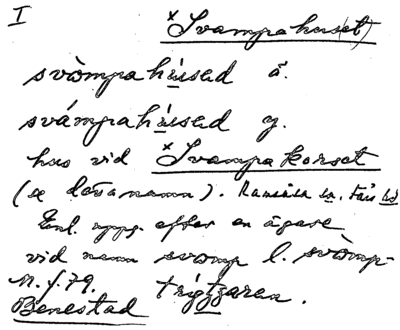 I
×Svampahuset)
svòmpahúsad ä.
svámpahúsad y.
hus vid ×Svampakorset
(se dessa namn). Ramsåsa sn, Färs hd
Enl. uppg. efter en ägare
vid namn svamp l. svòmp-
N. f. 79. trìggaren.
Benestad